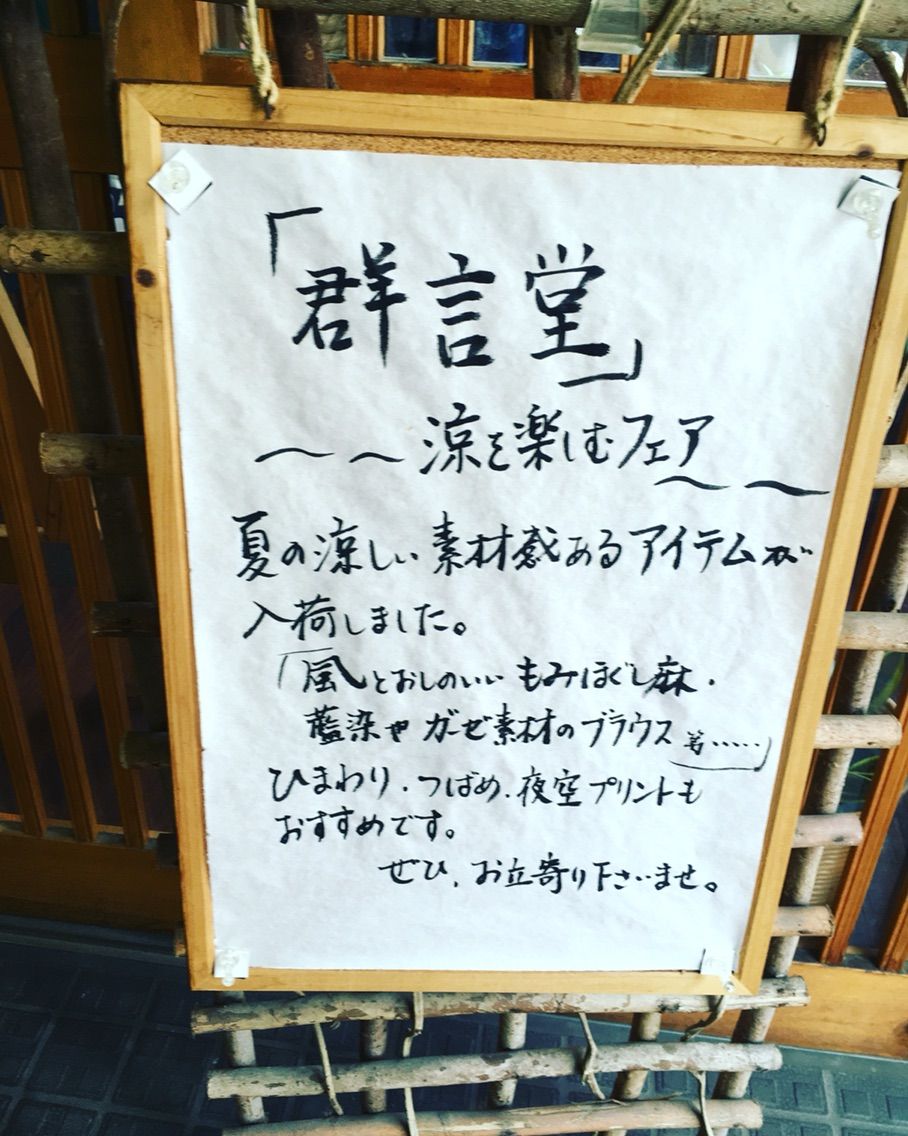 「群言堂」
～～涼を楽しむフェア～～
夏の涼しい素材感あるアイテムが
入荷しました。
「風とおしのいいもみほぐし麻・
藍染やガーゼ素材のブラウス等……」
ひまわり・つばめ・夜空プリントも
おすすめです。
ぜひ、お立寄り下さいませ。